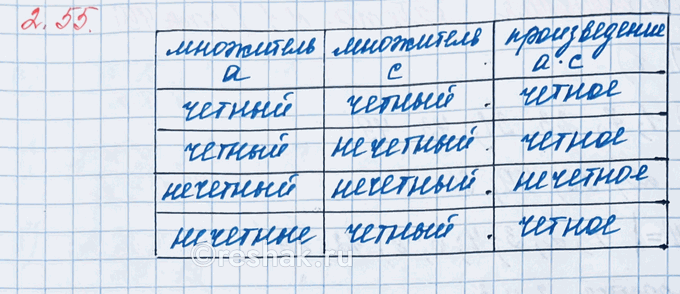 2.55.
множитель множитель произведение
а с а·с
четный четный четное
четный нечетный четное
нечетный нечетный нечетное
нечетные четный четное
©reshak.ru